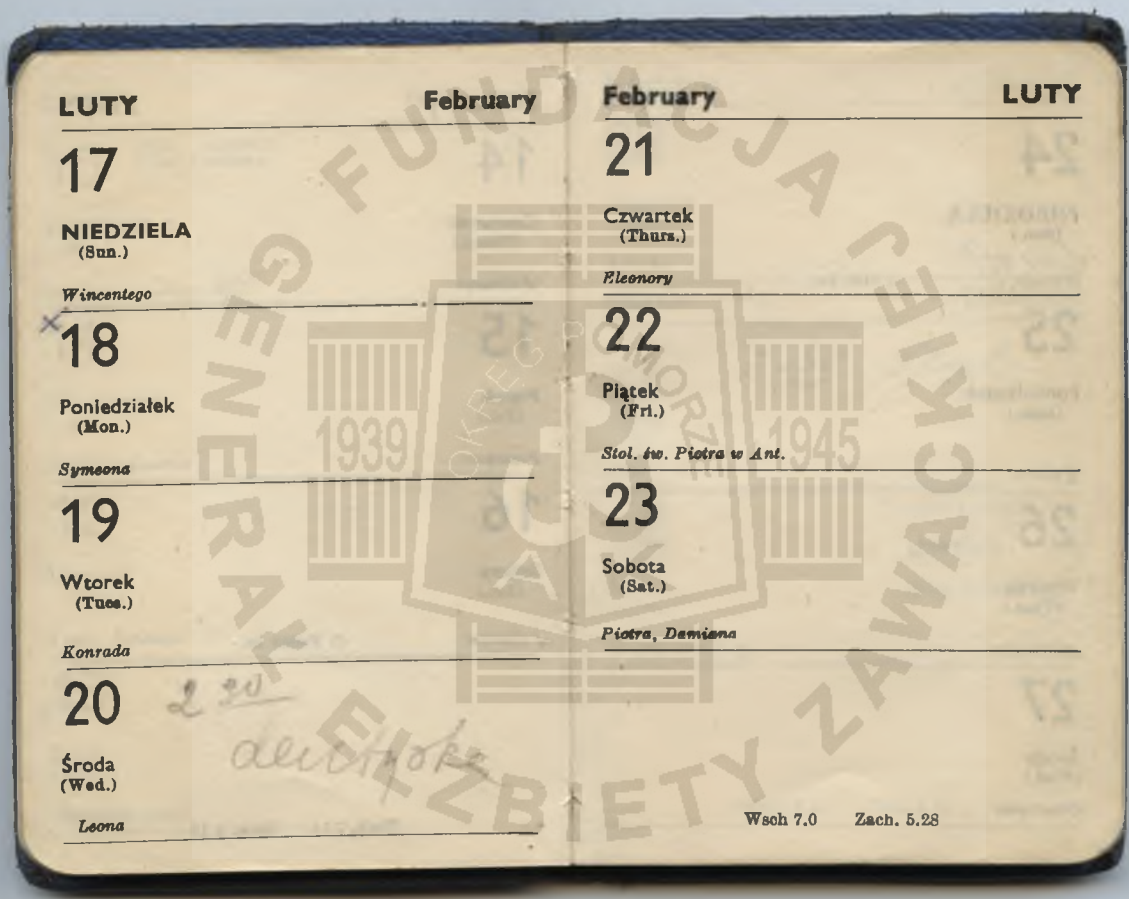 LUTY February
17
NIEDZIELA
(Sun.)
Wincentego
x
18
Poniedziałek
(Mon.)
Symeona
19
Wtorek
(Tues.)
Konrada
20
2 20
dentystka
Środa
(Wed.)
Leona
February LUTY
21
Czwartek
(Thurs.)
Eleonory
22
Piątek
(Fri.)
Stol. św. Piotra w Ant.
23
Sobota
(Sat.)
Piotra, Damiana
Wsch 7.0 Zach. 5.28
FUNDACJA
GENERAŁ ELŻBIETY ZAWACKIEJ
1939 1945
OKRĘG POMORZE
AK